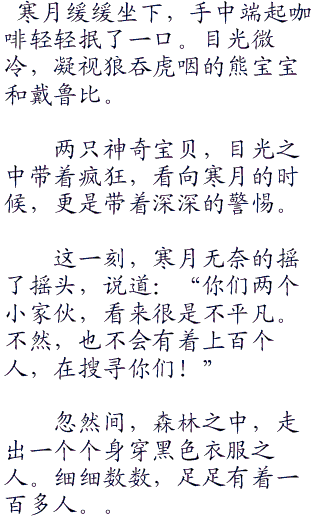 寒月缓缓坐下，手中端起咖
啡轻轻抿了一口。目光微
冷，凝视狼吞虎咽的熊宝宝
和戴鲁比。
两只神奇宝贝，目光之
中带着疯狂，看向寒月的时
候，更是带着深深的警惕。
这一刻，寒月无奈的摇
了摇头，说道：“你们两个
小家伙，看来很是不平凡。
不然，也不会有着上百个
人，在搜寻你们！”
忽然间，森林之中，走
出一个个身穿黑色衣服之
人。细细数数，足足有着一
百多人。。